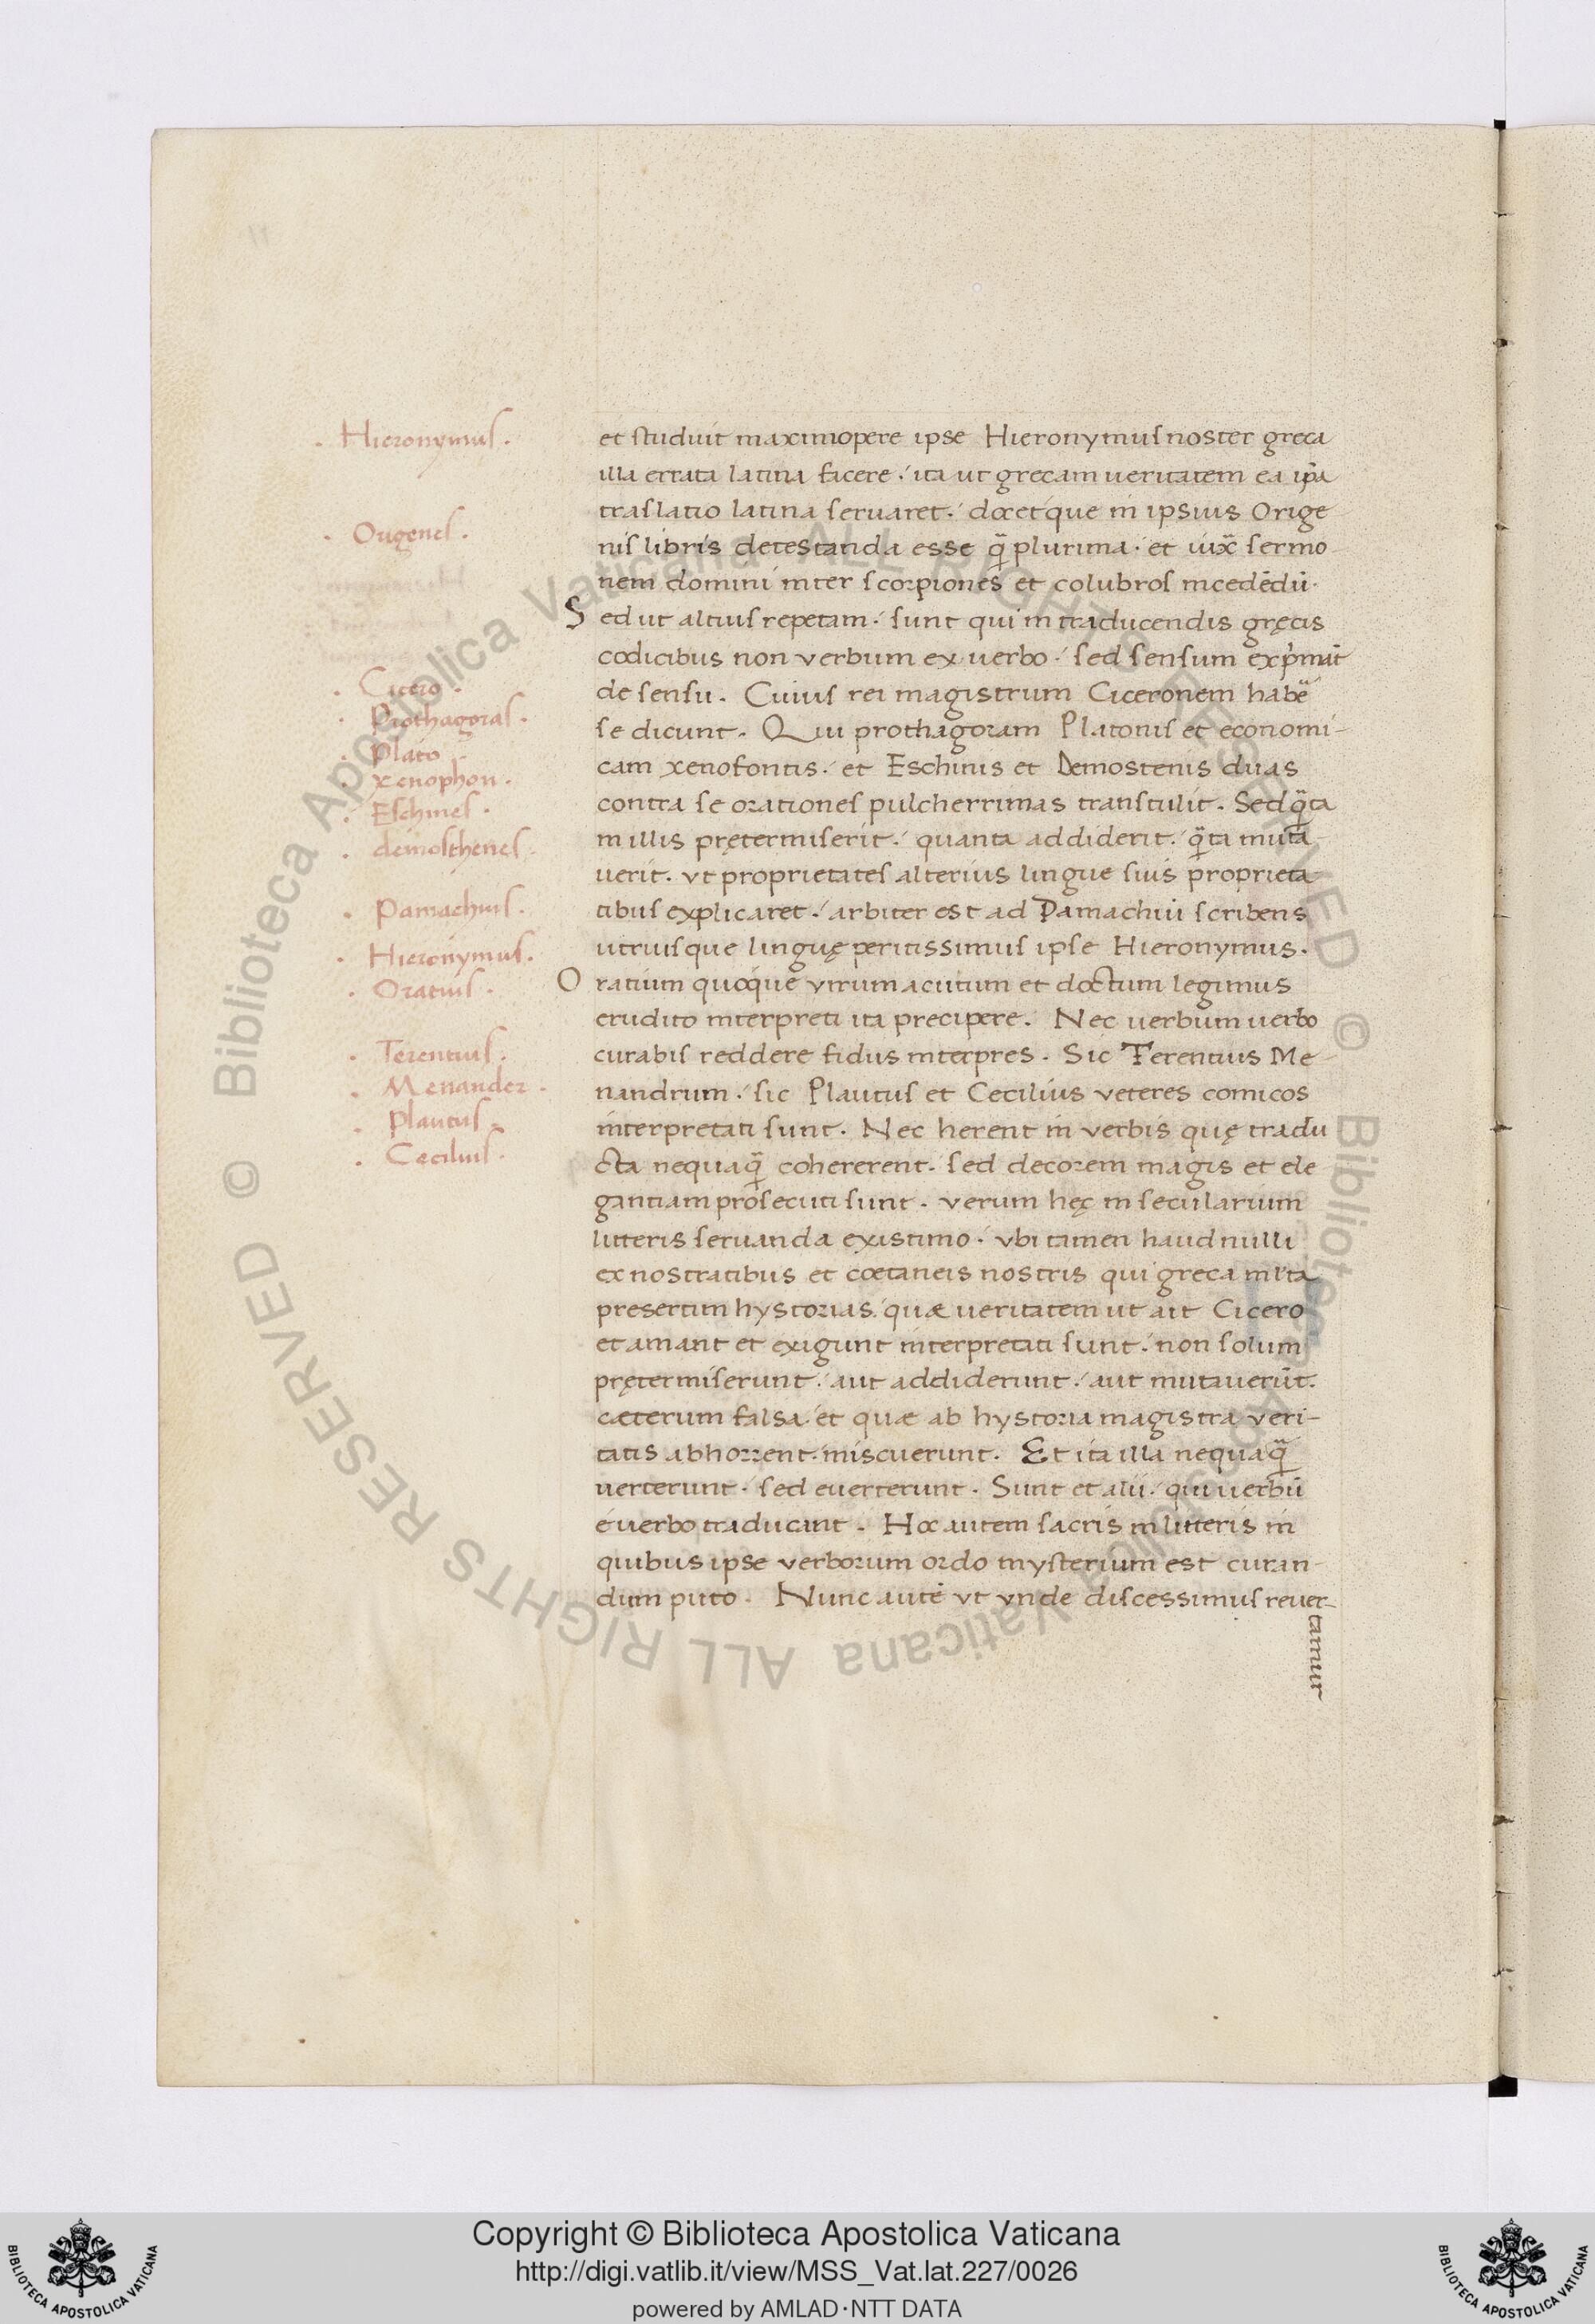 . Hieronymus .
. Origenes .
. Cicero .
. Prothagoras .
. Plato .
. xenophon .
. Eschines .
. demosthenes .
. Pamachius .
. Hieronymus .
. Oratius .
. Terentius .
. Menander .
. Plautus .
. Cęcilius .
et studuit maximopere ipse Hieronymus noster greca
illa errata latina facere . ita ut grecam ueritatem ea ip̄a
traslatio latina seruaret . docetque in ipsius Orige
nis libris detestanda esse q̄ plurima . et iux̄ sermo
nem domini inter scorpiones et colubros incedēdū .
Sed ut altius repetam . sunt qui in traducendis gręcis
codicibus non verbum ex uerbo . sed sensum exp̄mūt
de sensu . Cuius rei magistrum Ciceronem habē
se dicunt . Qui prothagoram Platonis et economi-
cam xenofontis . et Eschinis et Demostenis duas
contra se orationes pulcherrimas transtulit . Sed q̄ta
in illis pretermiserit . quanta addiderit . q̄ta muta
uerit . vt proprietates alterius lingue suis proprieta
tibus explicaret . arbiter est ad Pamachiū scribens
utriusque linguę peritissimus ipse Hieronymus .
Oratium quoque virum acutum et doctum legimus
erudito interpreti ita precipere . Nec uerbum uerbo
curabis reddere fidus interpres . Sic Terentius Me-
nandrum . sic Plautus et Cecilius veteres comicos
interpretati sunt . Nec herent in verbis quę tradu
cta nequaq̄ cohererent . sed decorem magis et ele
gantiam prosecuti sunt . verum hęc in secularium
litteris seruanda existimo . vbi tamen haud nulli
ex nostratibus et coetaneis nostris qui greca ml'ta
presertim hystorias . quæ ueritatem ut ait Cicero
et amant et exigunt interpretati sunt . non solum
prętermiserunt . aut addiderunt . aut mutauerūt .
cæterum falsa . et quæ ab hystoria magistra veri-
tatis abhorrent . miscuerunt . Et ita illa nequaq̄
uerterunt . sed euerterunt . Sunt et alii . qui uerbū
e uerbo traducant . Hoc autem sacris in litteris in
quibus ipse verborum ordo mysterium est curan-
dum puto . Nunc autē vt vnde discessimus reuer-
tamur
© Biblioteca Apostolica Vaticana ALL RIGHTS RESERVED © Biblioteca Apostolica Vaticana ALL RIGHTS RESERVED
Copyright © Biblioteca Apostolica Vaticana
http://digi.vatlib.it/view/MSS_Vat.lat.227/0026
powered by AMLAD·NTT DATA
BIBLIOTECA APOSTOLICA VATICANA
BIBLIOTECA APOSTOLICA VATICANA